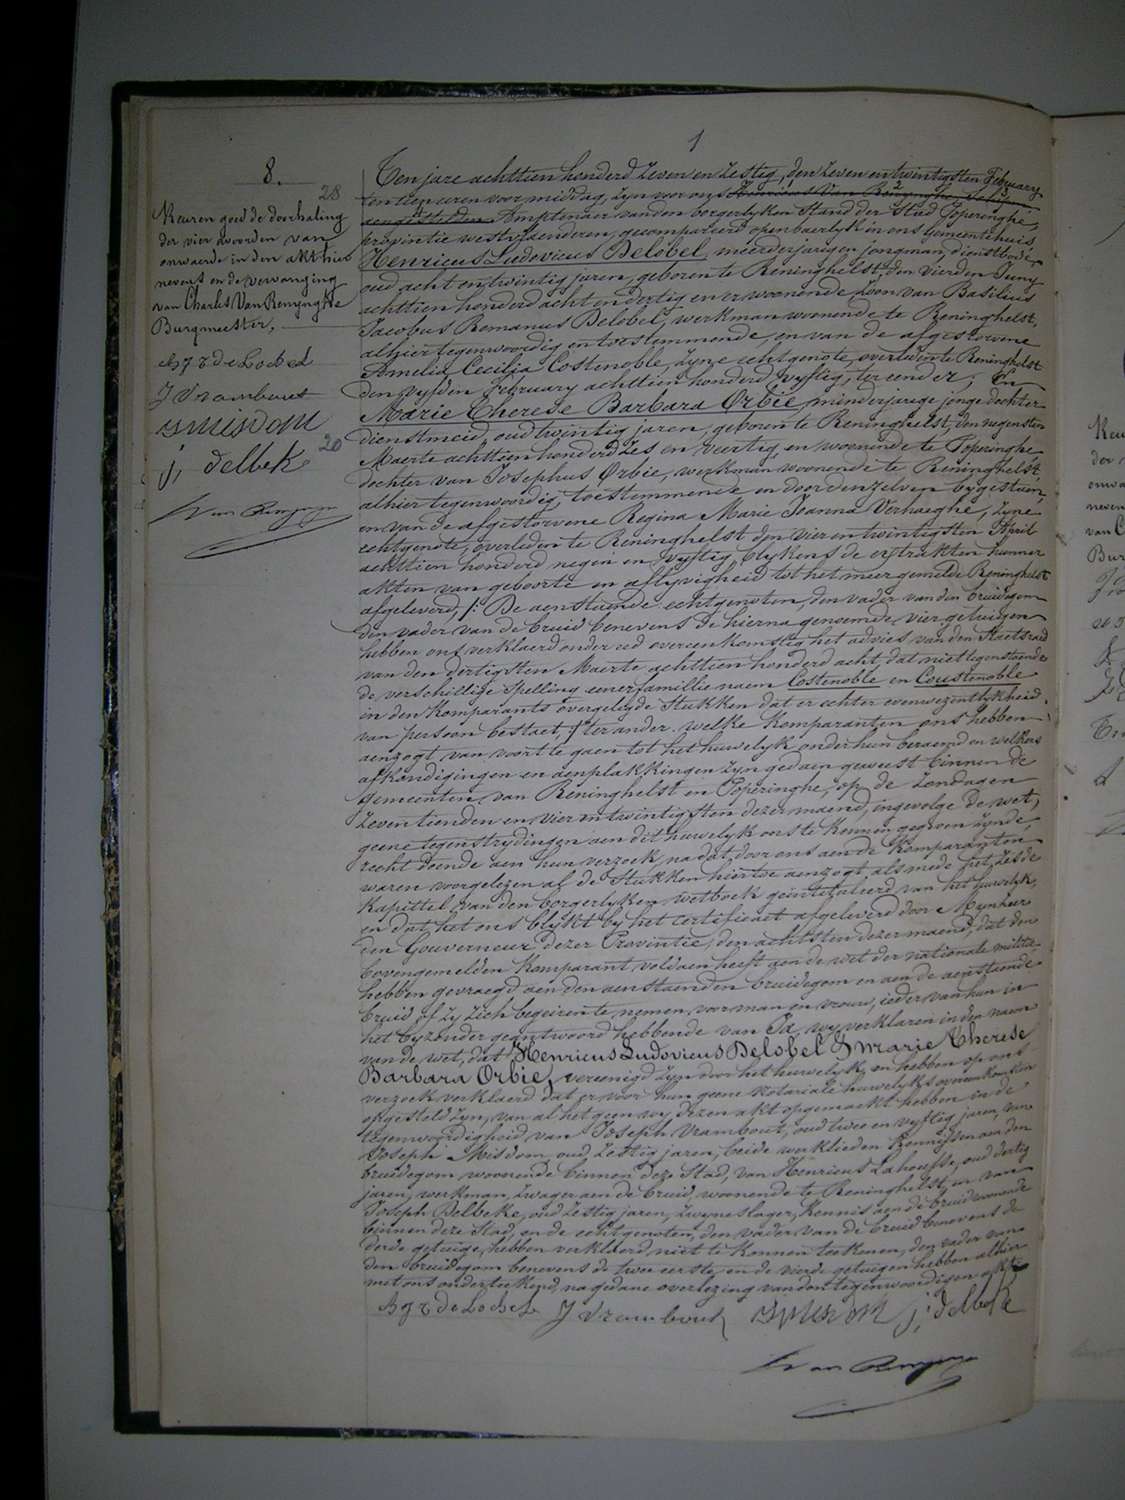 1
8.
28
Keuren goed de doorhaling
der vier woorden van
onwaerde in den akt hier
nevens en de vervanging
van Charles Van Renynghe
Burgmeester,
J Vrambout
J Misdom
20
j, delbeke
Van Renynghe
Ten jare achttien honderd Zeven en Zestig, den Zeven en twintigsten February
ten tien uren voormiddag, Zyn voor ons
Amptenaer van den borgerlyken Stand der Stad Poperinghe,
provintie westvlaenderen, gecompareerd openbaerlyk in ons Gemeentehuis,
Henricus Ludovicus Delobel, meerderjarigen jongman, dienstbode,
oud acht en twintig jaren, geboren te Reninghelst, den vierden Juny
achttien honderd acht en dertig en er woonende, Zoon van Basilius
Jacobus Romanus Delobel, werkman woonende te Reninghelst,
alhier tegenwoordig en toestemmende, en van de afgestorvene
Amelia Cecilia Costenoble, Zyne echtgenote, overleden te Reninghelst
den vyfden February achttien honderd vyftig, ter eender; En
Marie Therese Barbara Orbie, minderjarige jonge dochter
dienstmeid, oud twintig jaren, geboren te Reninghelst, den negensten
Maerte achttien honderd Zes en veertig en woonende te Poperinghe
dochter van Josephus Orbie, werkman woonende te Reninghelst,
alhier tegenwoordig, toestemmende en door denzelven bygestaen,
en van de afgestorvene Regina Marie Joanna Verhaeghe, Zyne
echtgenote, overleden te Reninghelst den vier en twintigsten April
achttien honderd negen en vyftig, blykens de extrakten hunner
akten van geboorte en aflyvigheid tot het meergemelde Reninghelst
afgeleverd, /: De aenstaende echtgenoten, den vader van den bruidegom
den vader van de bruid benevens de hierna genoemde vier getuigen
hebben ons verklaerd onder eed overeenkomstig het advies van den Staetsraed
van den dertigsten Maerte achttien honderd acht, dat niettegenstaende
de verschillige Spelling eener famillie naem Costenoble en Coustenoble
in den Komparants overgelegde Stukken dat er echter evenwezentlykheid
van persoon bestaet, :/ ter ander. welke Komparanten ons hebben
aenzogt van voort te gaen tot het huwelyk onder hun beraemd en welkers
afkondigingen en aenplakkingen Zyn gedaen geweest binnen de
Gemeenten van Reninghelst en Poperinghe, op de Zondagen
Zeventienden en vier en twintigsten dezer maend, ingevolge de wet,
geene tegenstrydingen aen dit huwelyk ons te kennen gegeven Zynde,
recht doende aen hun verzoek, nadat door ons aen de Komparanten
waren voorgelezen al de Stukken hiertoe aenzogt, als mede het Zesde
Kapittel van den borgerlyken wetboek geintitaleerd van het huwelyk
en dat het ons blykt by het Certificaet afgeleverd door Mynheer
den Gouverneur dezer Provintie, den achtsten dezer maend, dat den
bovengemelden Komparant voldaen heeft aen de wet der nationale militie,
hebben gevraegd aen den aenstaenden bruidegom en aen de aenstaende
bruid of Zy Zich begeiren te nemen, voor man en vrouw, ieder van hun in
het byzonder geantwoord hebbende van Ja, wy verklaren in den naem
van de wet, dat Henricus Ludovicus Delobel & Marie Therese
Barbara Orbie, vereenigd Zyn door het huwelyk, en hebben op ons
verzoek verklaerd dat er voor hun geene Notariale huwelyksovereenkomsten
opgesteld Zyn, van al het geen wy dezen akt opgemaekt hebben in de
tegenwoordigheid van Joseph Vrambout, oud twee en vyftig jaren, van
Joseph Misdom, oud Zestig jaren, beide werklieden Kennissen aen den
bruidegom woonende binnen deze Stad, van Henricus Lahousse, oud dertig
jaren, werkman, Zwager aen de bruid, woonende te Reninghelst, en van
Joseph Delbeke, oud Zestig jaren, Zwyneslager, Kennis aen de bruid woonende
binnen deze Stad, en de echtgenoten, den vader van de bruid benevens de
derde getuige, hebben verklaerd niet te konnen teekenen, den vader van
den bruidegom benevens de twee eerste en de vierde getuigen hebben alhier
met ons onderteekend, na gedane overlezing van den tegenwoordigen akt.
J Vrambout
J Misdom
j, delbeke
Van Renynghe